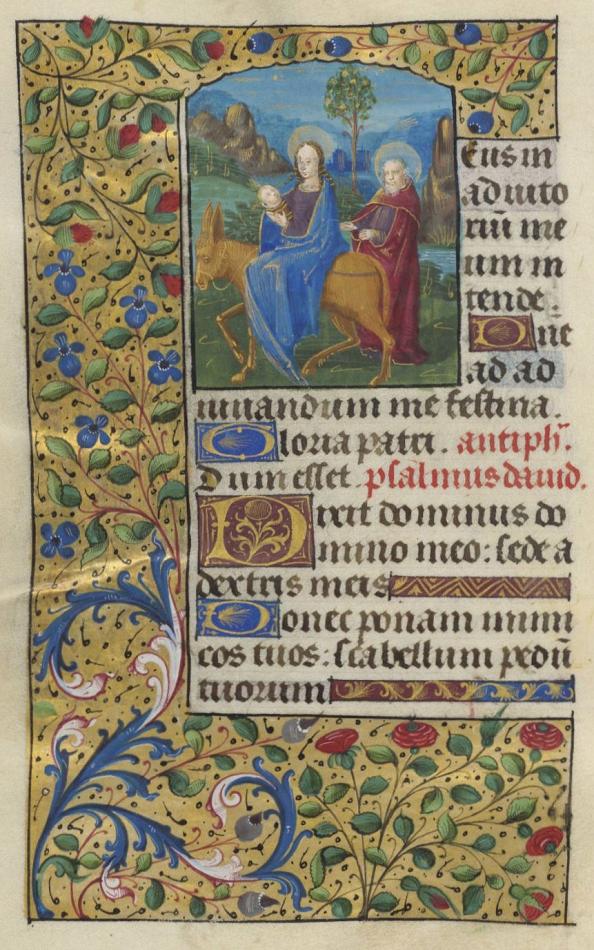 Eus in
adiuto
riū me
um in
tende.
Dne
ad ad
iuuandum me festina.
Gloria patri. antiph'.
Dum esset. psalmus dauid.
Dixit dominus do
mino meo: sede a
dextris meis
Donec ponam inimi
cos tuos: scabellum pedū
tuorum